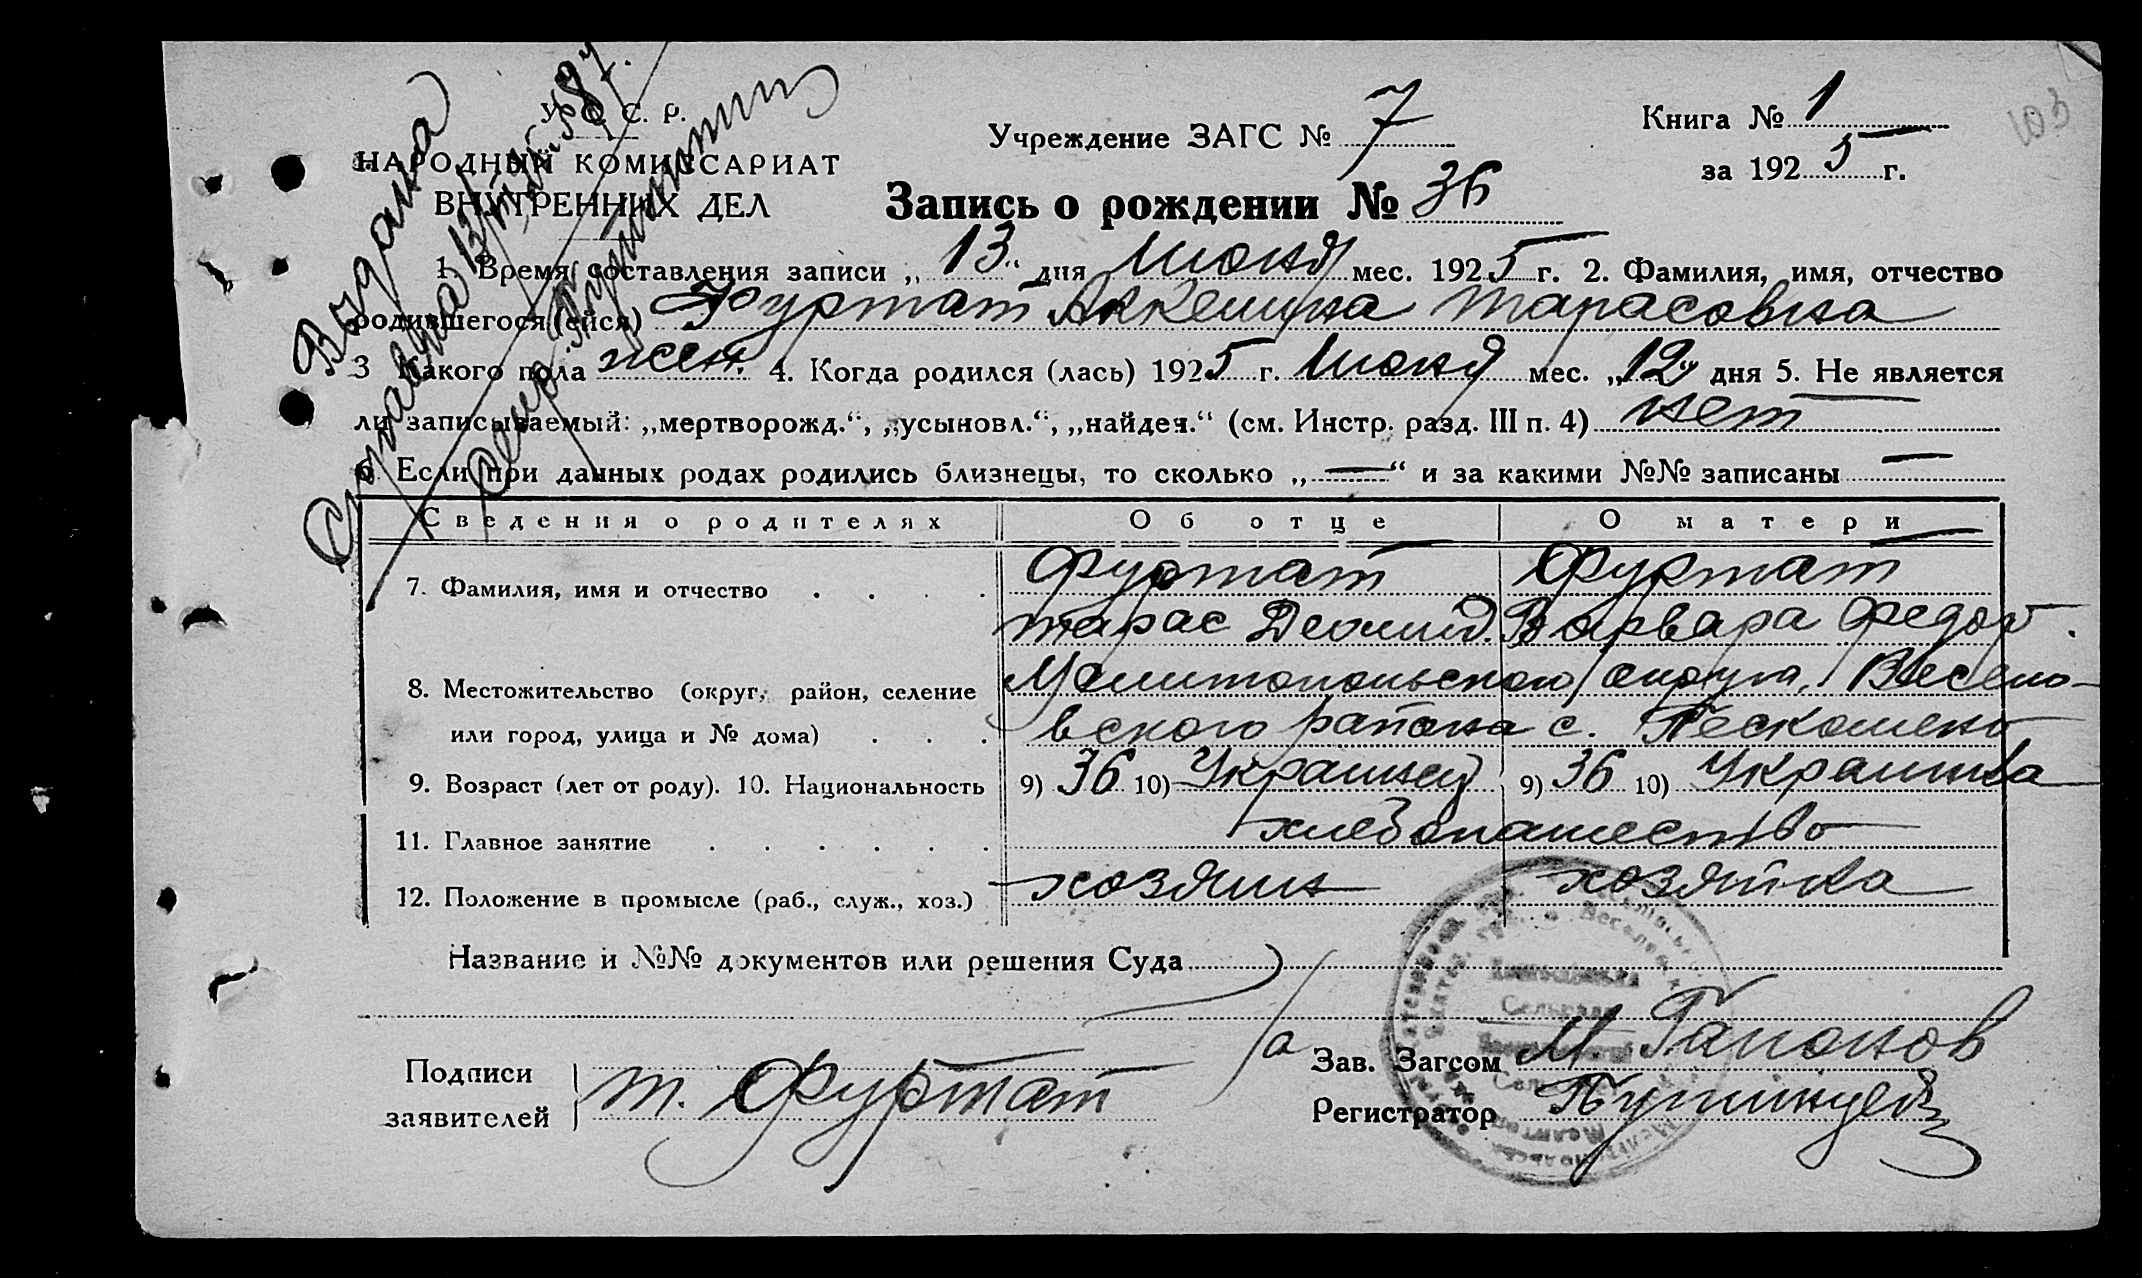 103
У. С. С. Р.
НАРОДНЫЙ КОМИССАРИАТ
ВНУТРЕННИХ ДЕЛ
Учреждение ЗАГС № 7
Книга № 1
за 1925 г.
Запись о рождении № 36
Выдана
Справка 13/
1. Время составления записи „13“ дня Июня мес. 1925 г. 2. Фамилия, имя, отчество
родившегося (ейся) Фуртат Аккелина Тарасовна
3 Какого пола жен. 4. Когда родился (лась) 1925 г. Июня мес. „12„ дня 5. Не является
ли записываемый: „мертворожд.“, „усыновл.“, „найден.“ (см. Инстр. разд. III п. 4) нет
6. Если при данных родах родились близнецы, то сколько „—“ и за какими №№ записаны —
Сведения о родителях Об отце О матери
7. Фамилия, имя и отчество Фуртат Фуртат
Тарас Деомид. Варвара Федор.
8. Местожительство (округ, район, селение Мелитопольского округа, Весело-
или город, улица и № дома) вского района с.
9. Возраст (лет от роду). 10. Национальность 9) 36 10) Украинец 9) 36 10) Украинка
11. Главное занятие хлебопашество
12. Положение в промысле (раб., служ., хоз.) хозяин хозяйка
Название и №№ документов или решения Суда
Сельрада
Подписи
заявителей Т. Фуртат
Зав. Загсом М. Гапонов
Регистратор